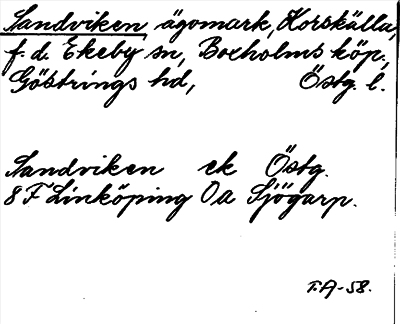 Sandviken, ägomark, Horskälla,
f. d. Ekeby sn, Boxholms köp.,
Göstrings hd, Östg. l.
Sandviken ek Östg.
8 F Linköping 0a Sjögarp.
T.A-58.